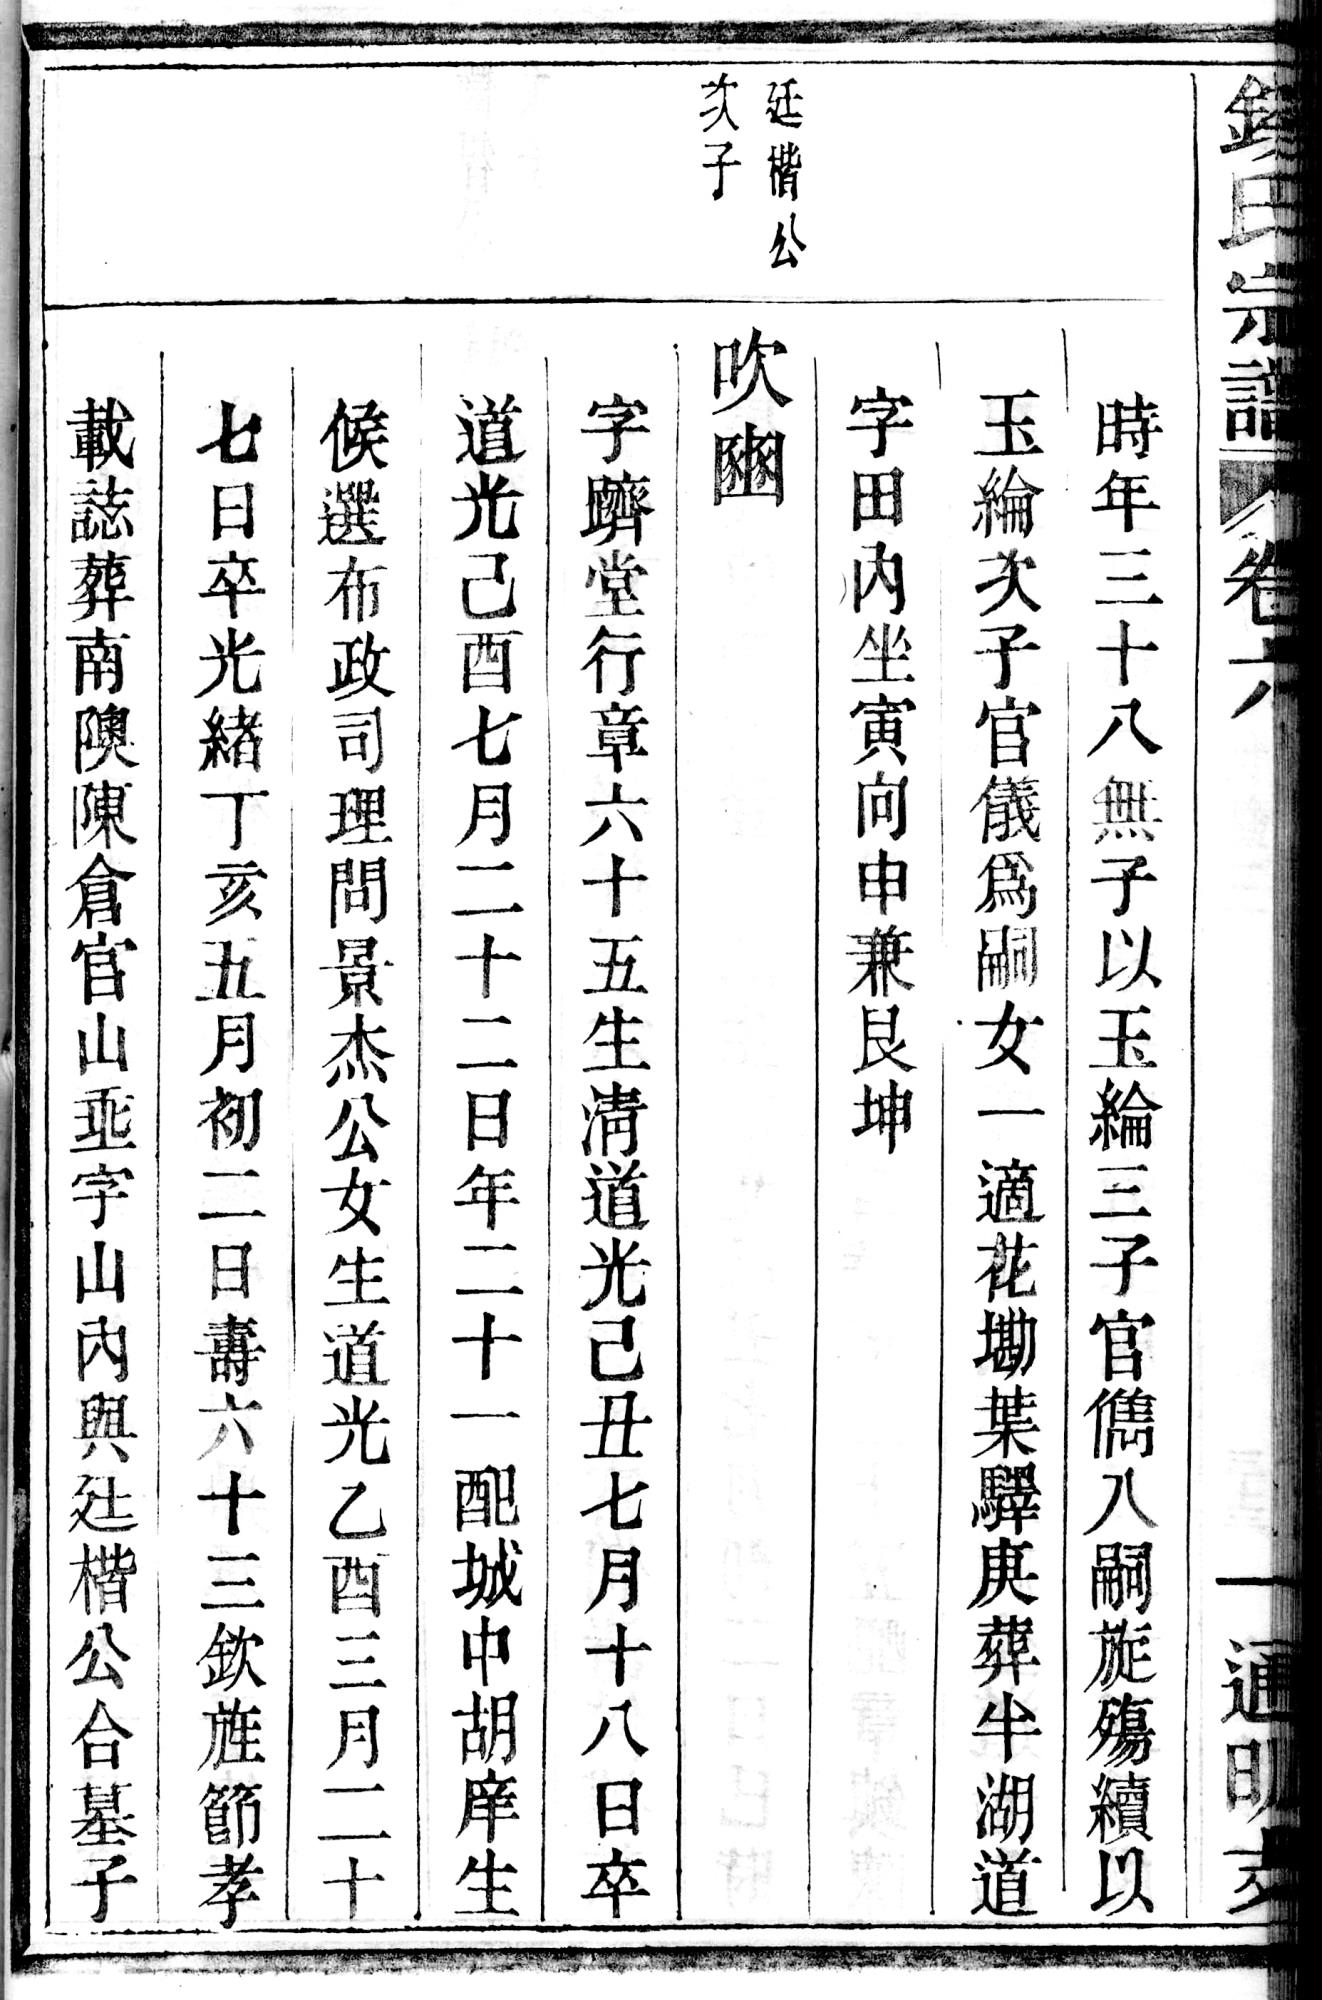 錢氏宗譜 卷六 一 通明支
時年三十八無子以玉綸三子官儁入嗣旋殤續以
玉綸次子官儀爲嗣女一適花墈葉驛庚葬牛湖道
字田內坐寅向申兼艮坤
廷楷公
次子
吹豳
字躋堂行章六十五生淸道光己丑七月十八日卒
道光己酉七月二十二日年二十一配城中胡庠生
候選布政司理問景杰公女生道光乙酉三月二十
七日卒光緒丁亥五月初二日壽六十三欽旌節孝
載誌葬南隩陳倉官山亞字山內與廷楷公合墓子